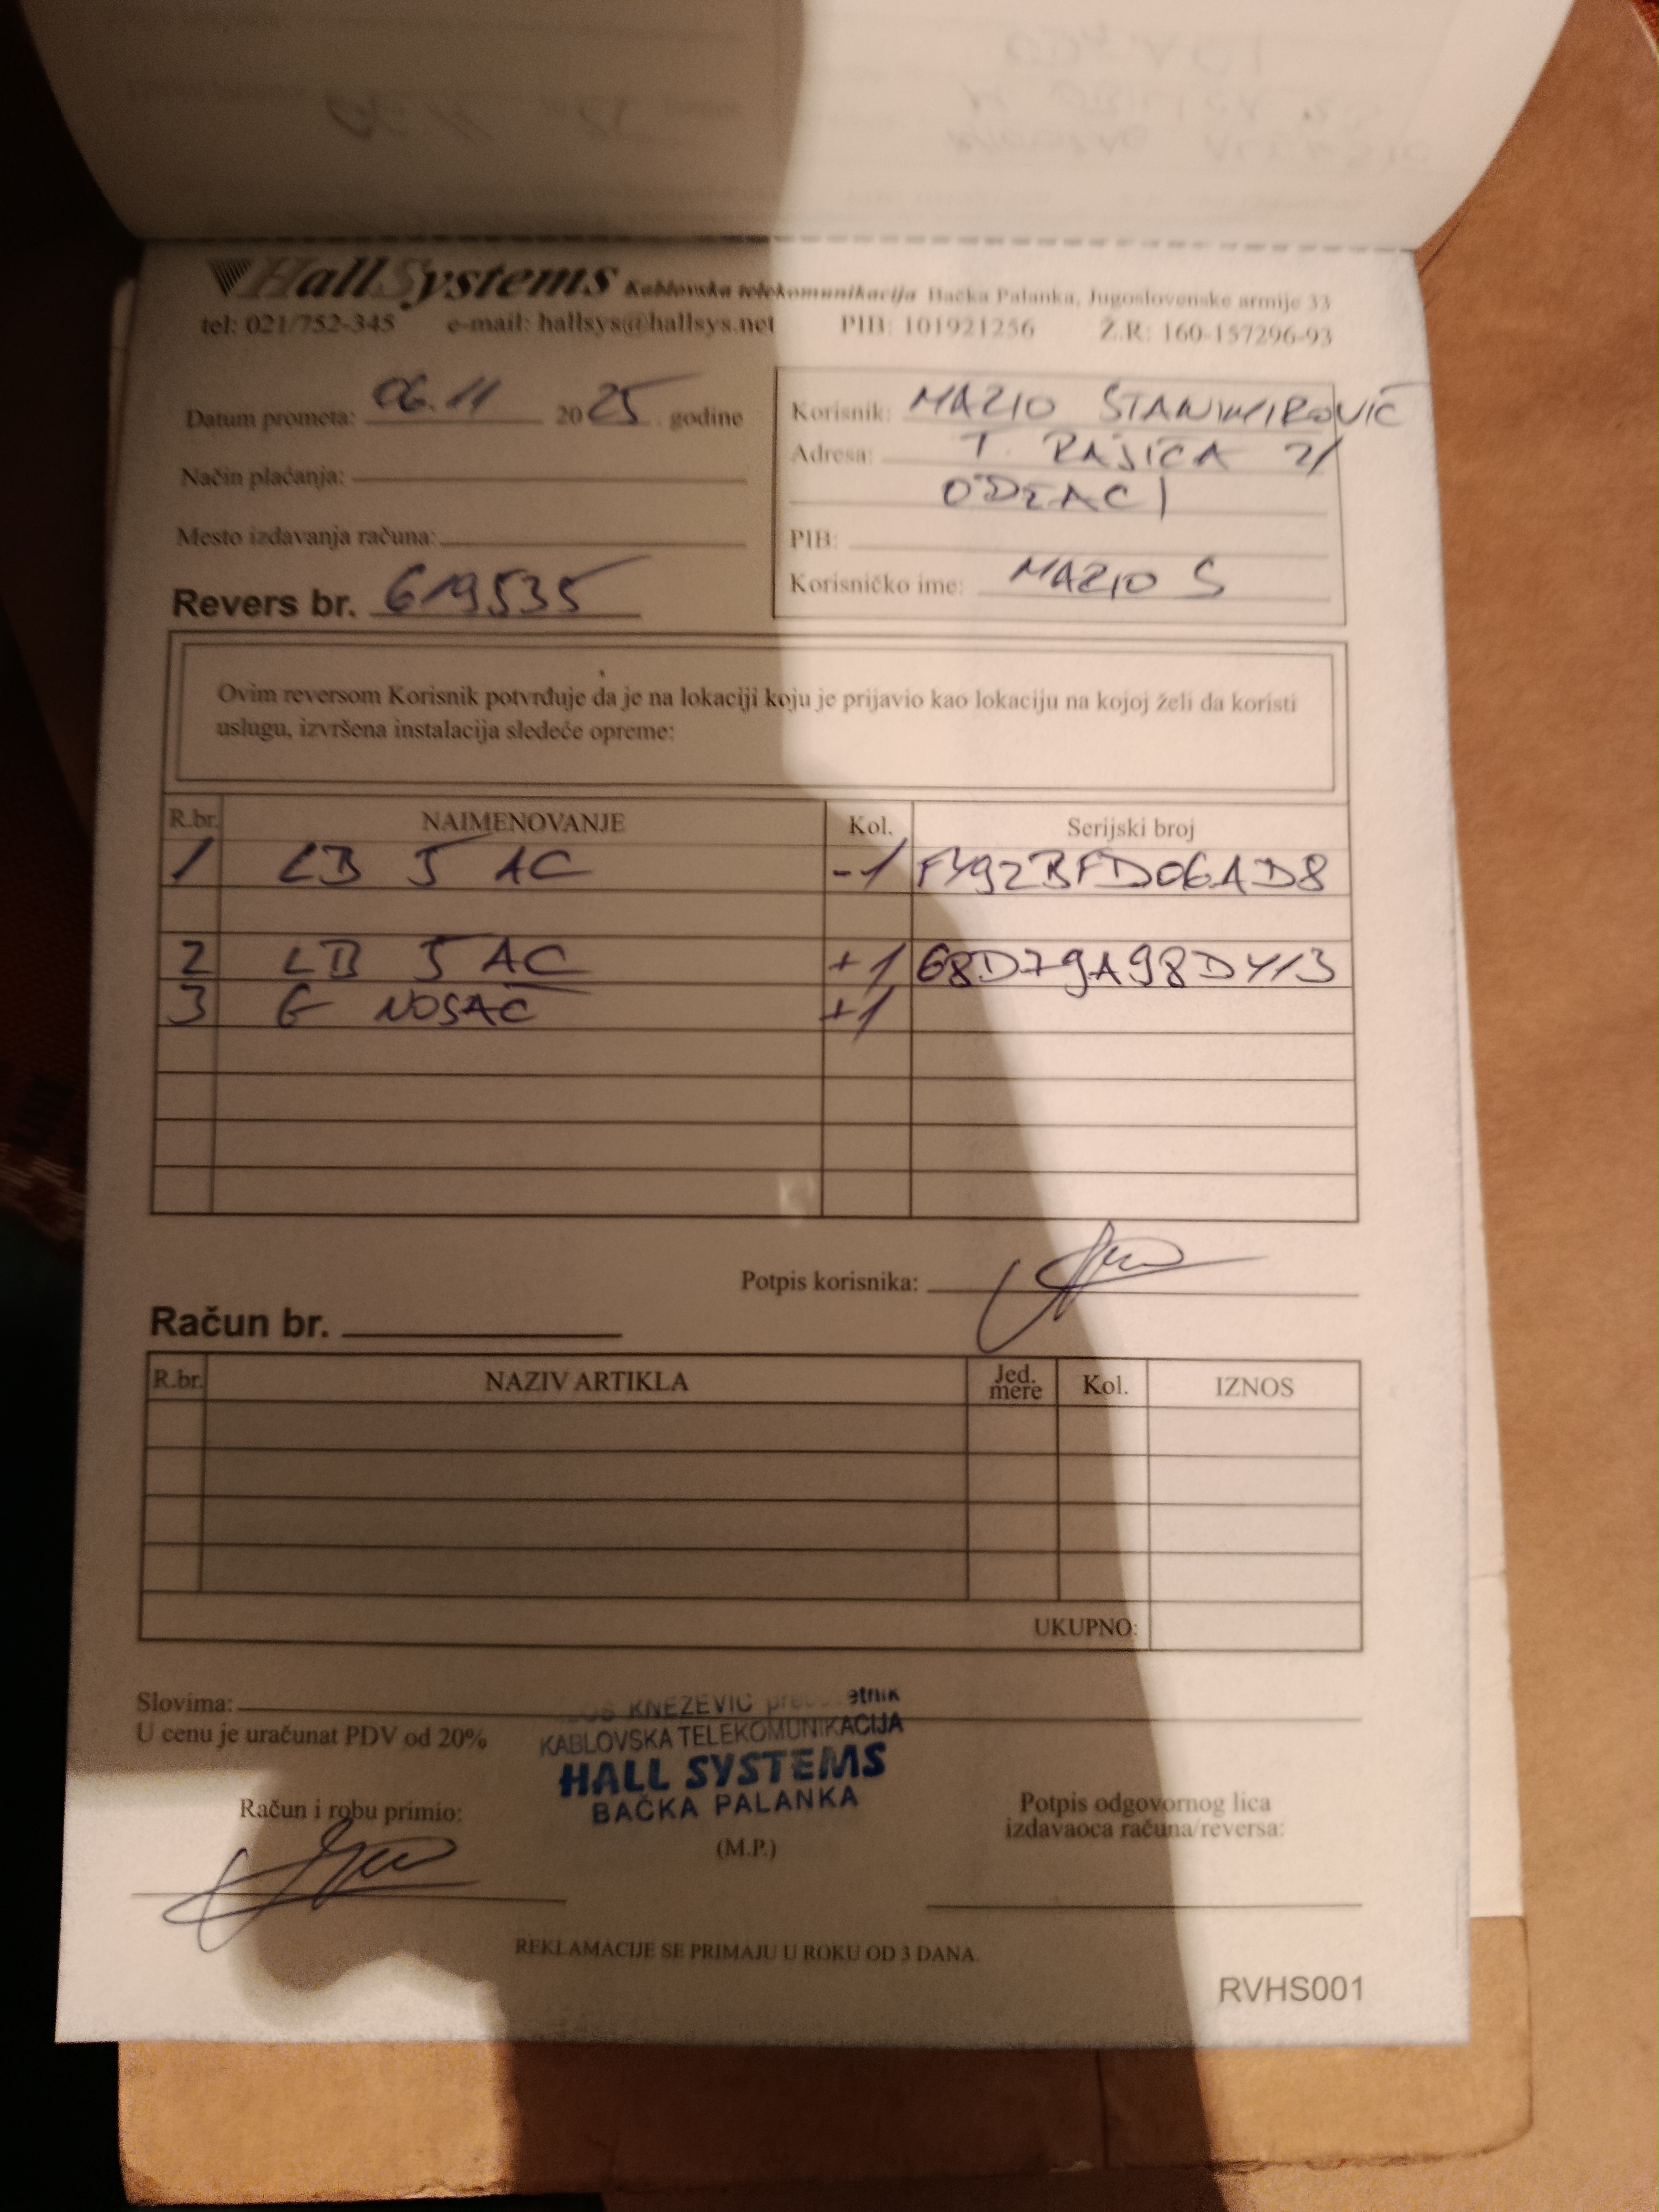 HallSystems Kablovska telekomunikacija Bačka Palanka, Jugoslovenske armije 33
tel: 021/752-345 e-mail: hallsys@hallsys.net PIB: 101921256 Ž.R: 160-157296-93
Datum prometa: 06.11 2025. godine
Način plaćanja:
Mesto izdavanja računa:
Revers br. 619535
Korisnik: MARIO STANIMIROVIĆ
Adresa: T. RAJIĆA
ODŽACI
PIB:
Korisničko ime: MARIO S
Ovim reversom Korisnik potvrđuje da je na lokaciji koju je prijavio kao lokaciju na kojoj želi da koristi
uslugu, izvršena instalacija sledeće opreme:
R.br. NAIMENOVANJE Kol. Serijski broj
1 LB 5 AC -1 F492BFD06AD8
2 LB 5 AC +1 68D79A98D413
3 G NOSAČ +1
Potpis korisnika:
Račun br.
R.br. NAZIV ARTIKLA Jed. mere Kol. IZNOS
UKUPNO:
Slovima:
U cenu je uračunat PDV od 20%
KNEŽEVIĆ
KABLOVSKA TELEKOMUNIKACIJA
HALL SYSTEMS
BAČKA PALANKA
(M.P.)
Račun i robu primio:
Potpis odgovornog lica
izdavaoca računa/reversa:
REKLAMACIJE SE PRIMAJU U ROKU OD 3 DANA.
RVHS001